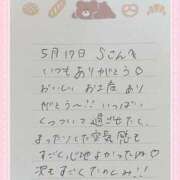 5月17日 Sこんを
いつもありがとう♡
おいしいお店あり
がとう〜!! いっぱい
くっついて過ごせたし、
まったりした空気感も
すごく心地よかったね♡
次もすごくたのしみ!!